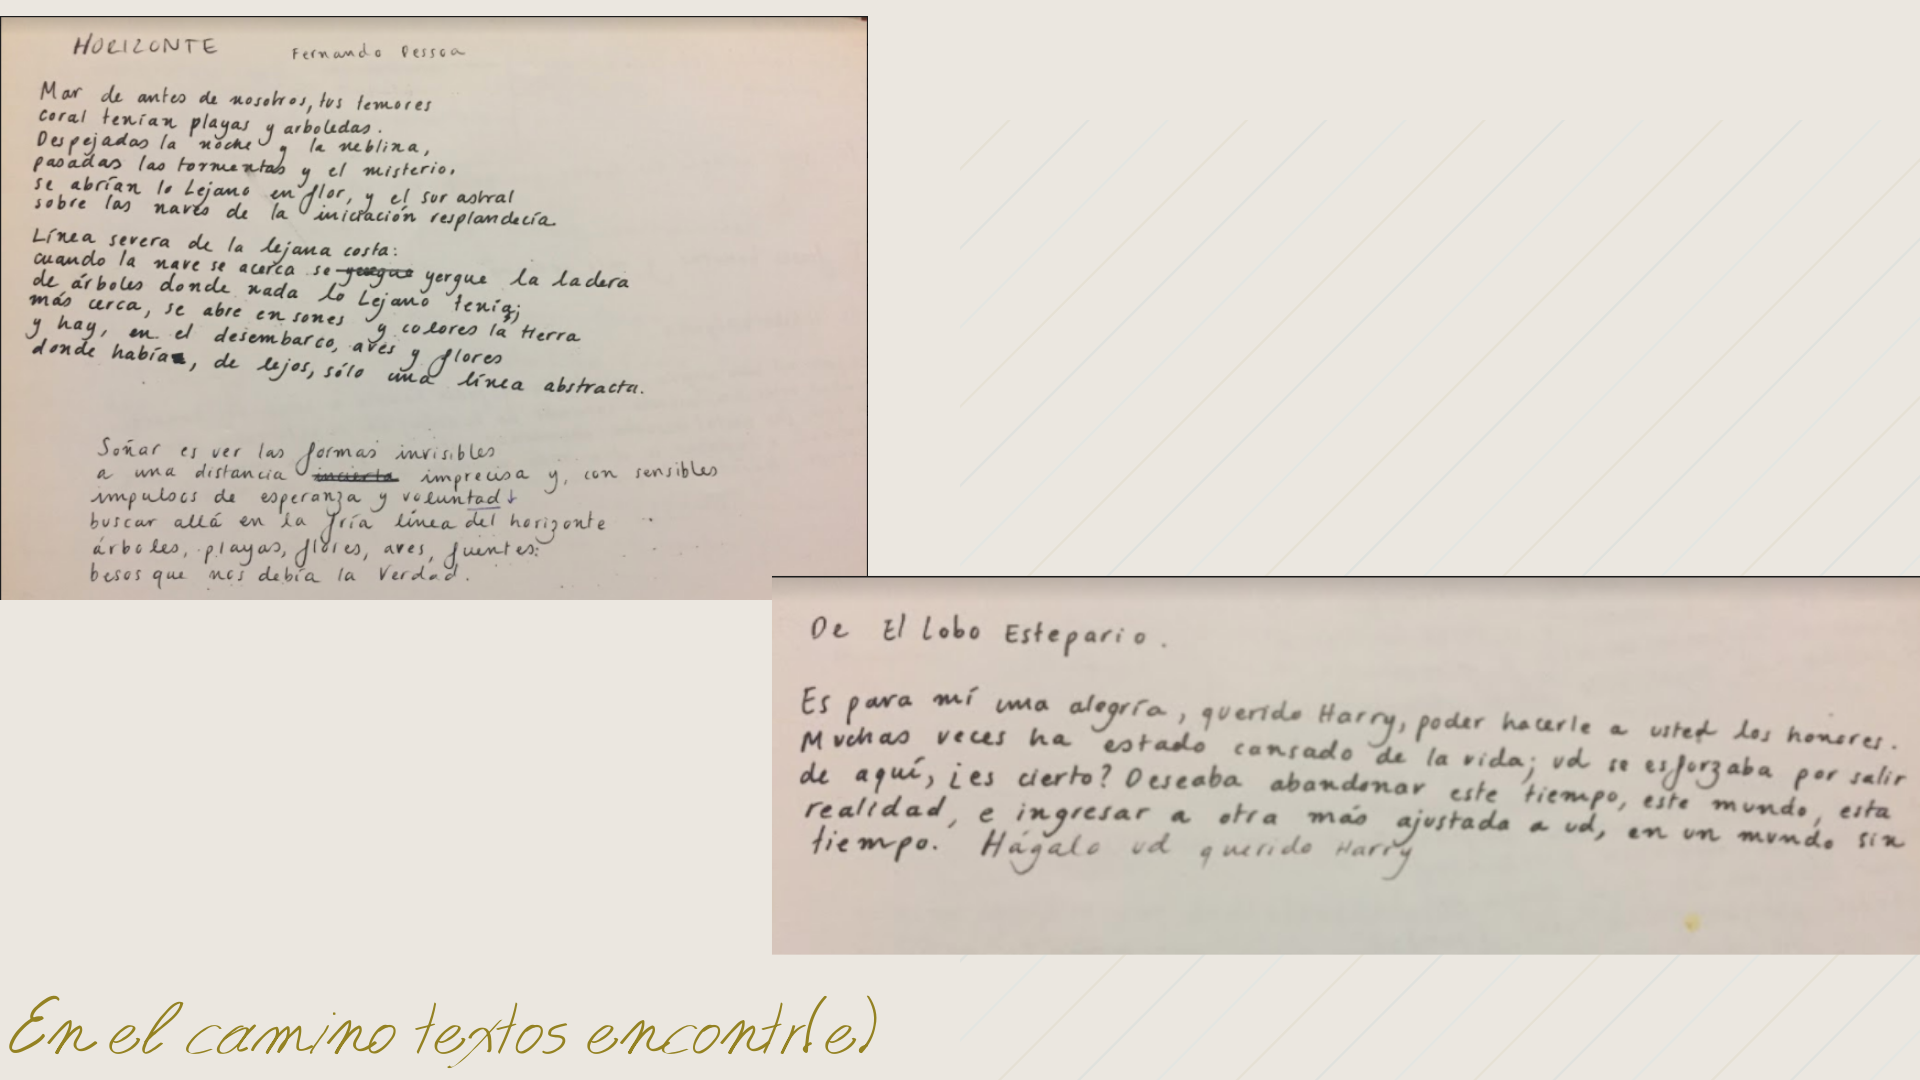 HORIZONTE Fernando Pessoa
Mar de antes de nosotros, tus temores
coral tenían playas y arboledas.
Despejadas la noche y la neblina,
pasadas las tormentas y el misterio,
se abrían lo Lejano en flor, y el sur astral
sobre las naves de la iniciación resplandecía.
Línea severa de la lejana costa:
cuando la nave se acerca se yergue la ladera
de árboles donde nada lo Lejano tenía;
más cerca, se abre en sones y colores la tierra
y hay, en el desembarco, aves y flores
donde había, de lejos, sólo una línea abstracta.
Soñar es ver las formas invisibles
a una distancia imprecisa y, con sensibles
impulsos de esperanza y voluntad
buscar allá en la fría línea del horizonte
árboles, playas, flores, aves, fuentes:
besos que nos debía la Verdad.
De El Lobo Estepario.
Es para mí una alegría, querido Harry, poder hacerle a usted los honores.
Muchas veces ha estado cansado de la vida; ud se esforzaba por salir
de aquí, ¿es cierto? Deseaba abandonar este tiempo, este mundo, esta
realidad, e ingresar a otra más ajustada a ud, en un mundo sin
tiempo. Hágalo ud querido Harry
En el camino textos encontr(e)